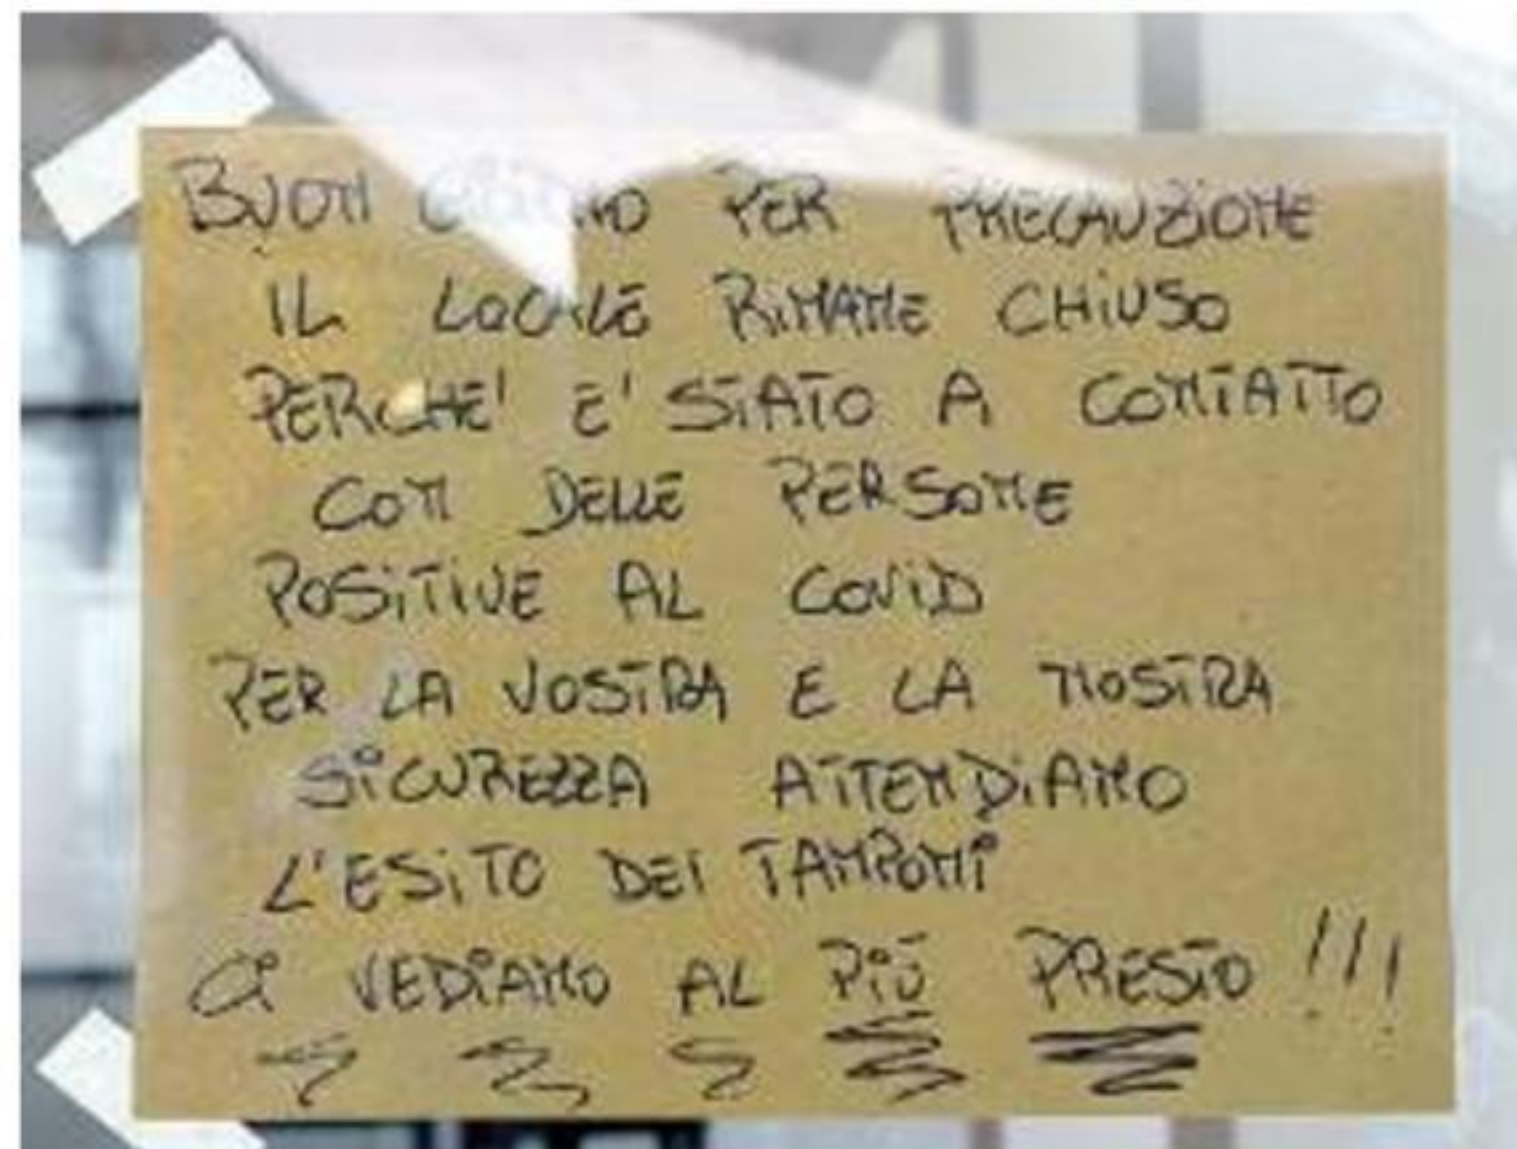 BUON GIORNO PER PRECAUZIONE
IL LOCALE RIMANE CHIUSO
PERCHE' E' STATO A CONTATTO
CON DELLE PERSONE
POSITIVE AL COVID
PER LA VOSTRA E LA NOSTRA
SICUREZZA ATTENDIAMO
L'ESITO DEI TAMPONI
CI VEDIAMO AL PIÙ PRESTO !!!